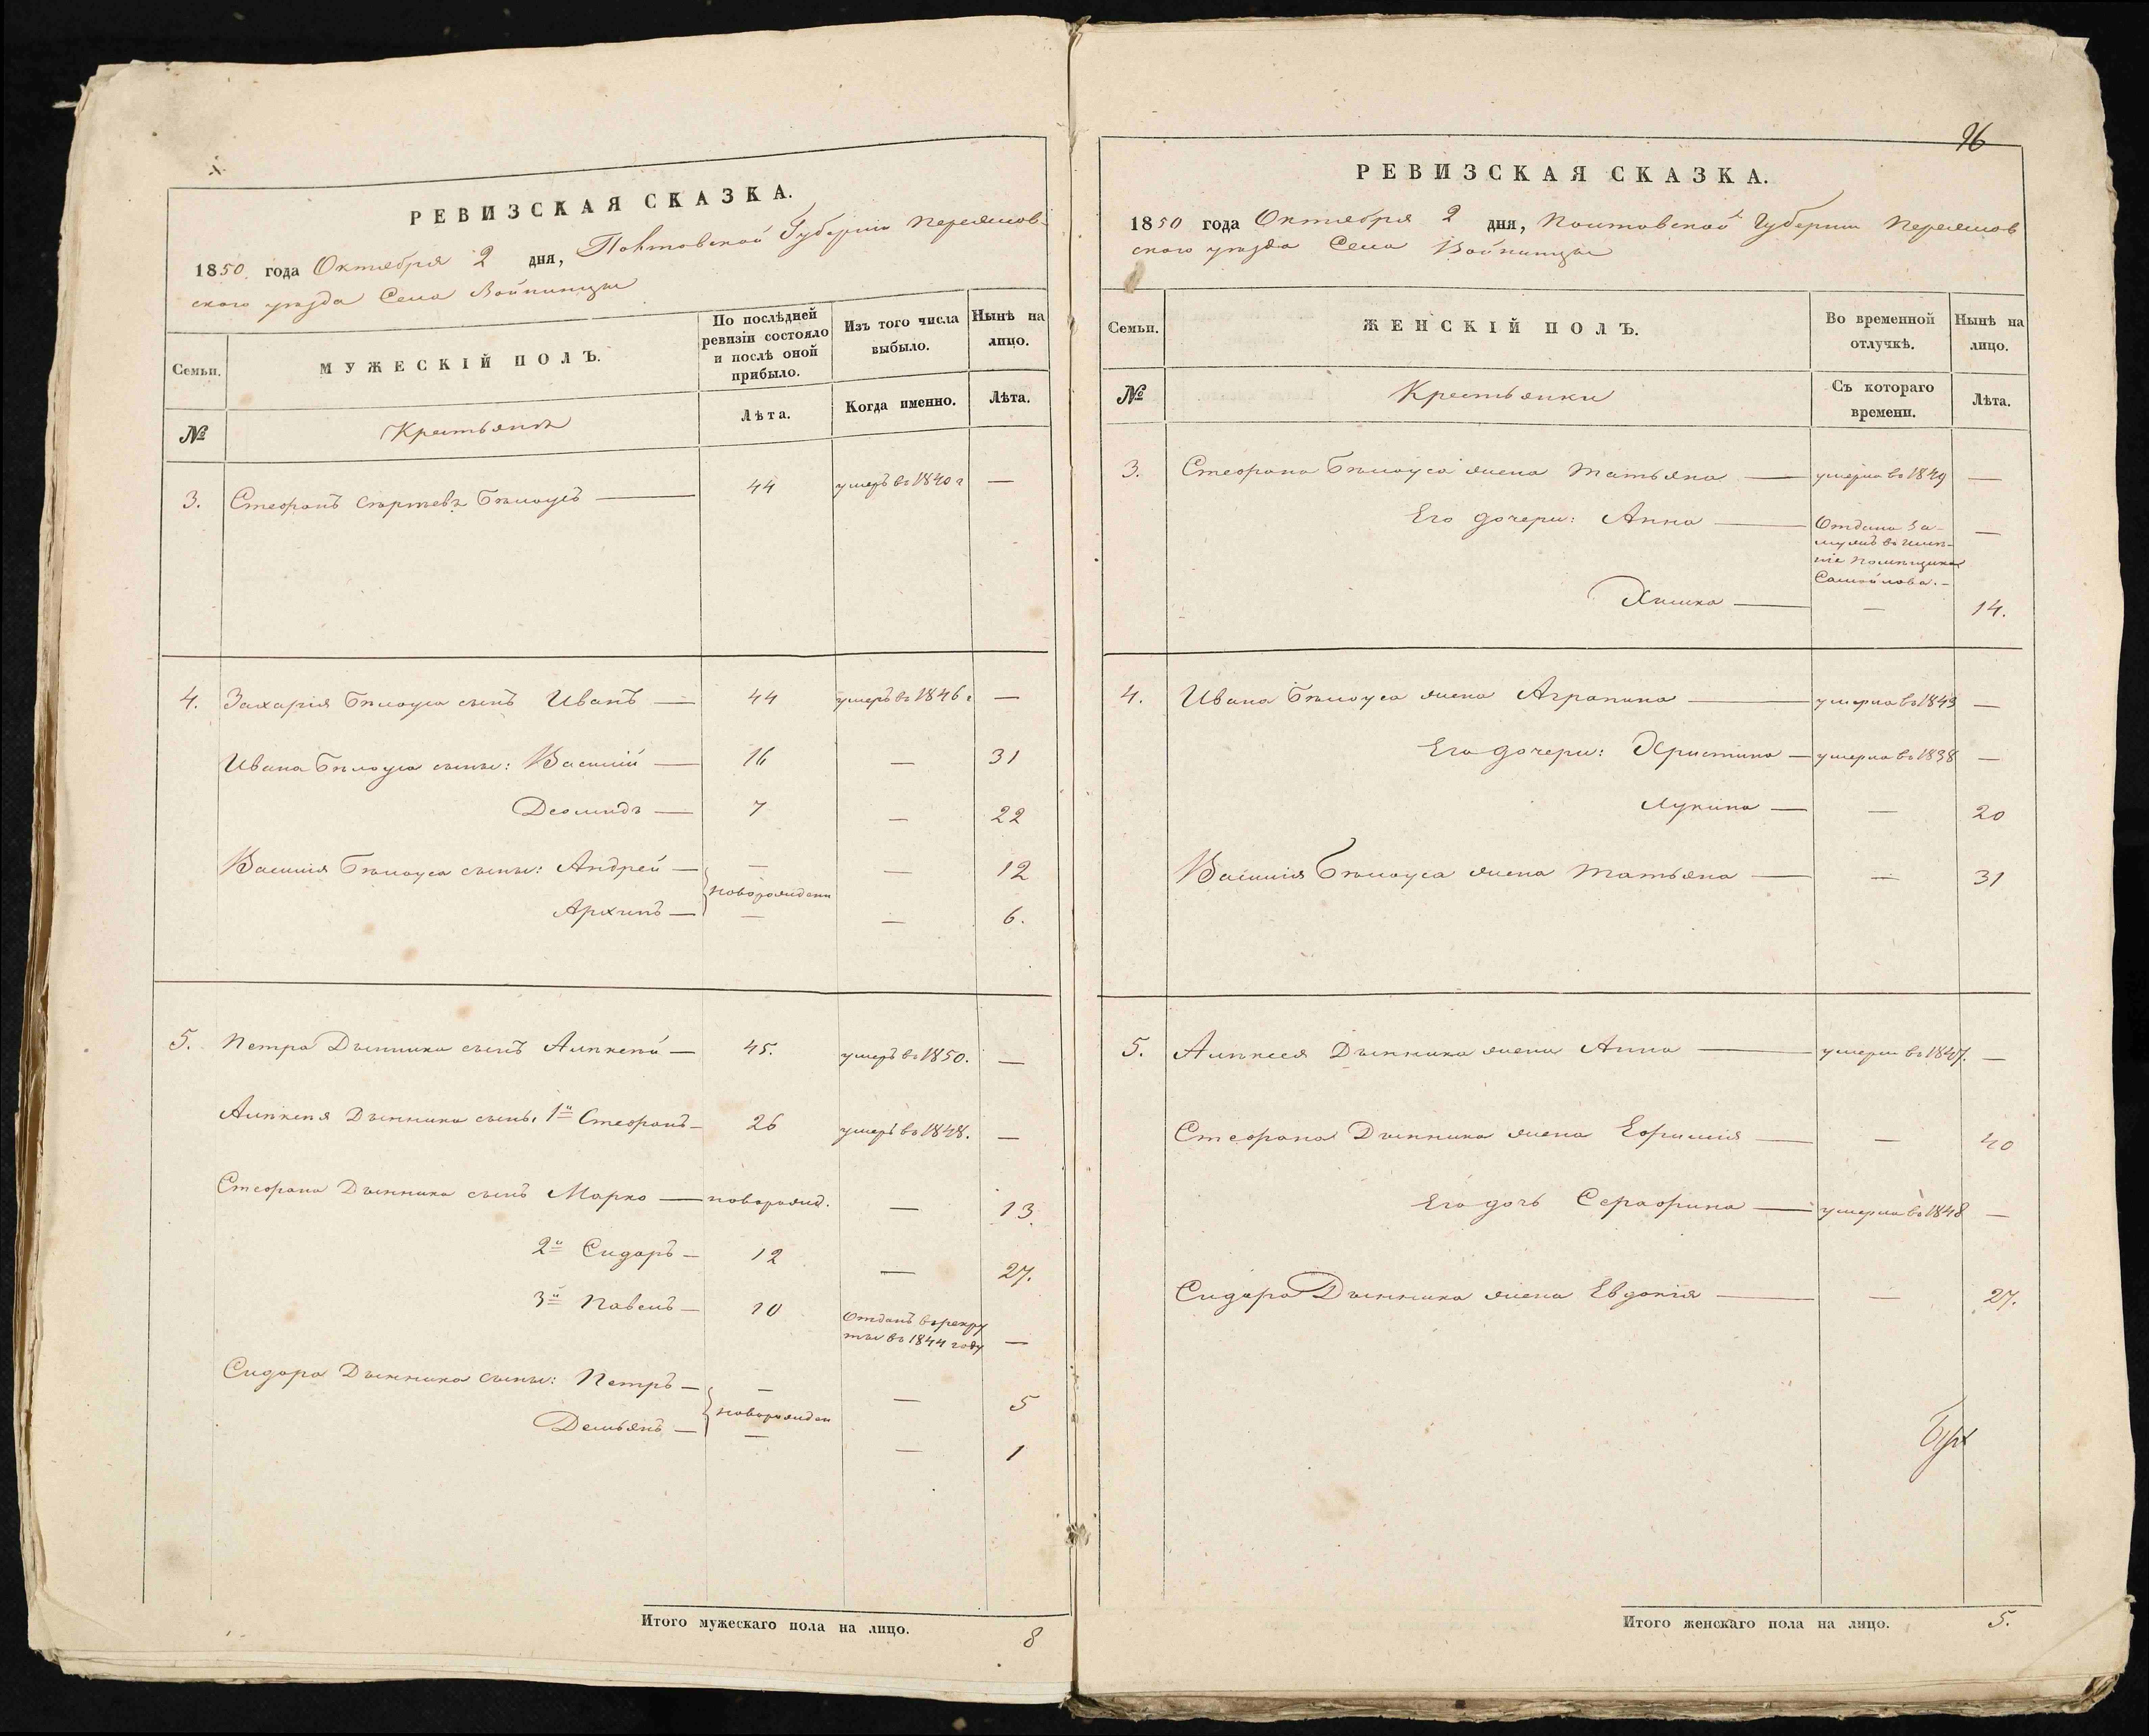 РЕВИЗСКАЯ СКАЗКА.
1850 года Октября 2 дня, Полтовской Губерніи Переяслов-
ского уѣзда Села Войтинцы
Семьи.
МУЖЕСКІЙ ПОЛЪ.
По послѣдней ревизіи состояло и послѣ оной прибыло.
Изъ того числа выбыло.
Нынѣ на лицо.
№
Крестьяне
Лѣта.
Когда именно.
Лѣта.
3. Стефанъ Бѣлоусъ — 44 умеръ въ 1840 г —
4. Захарія Бѣлоуса сынъ Иванъ — 44 умеръ въ 1846 г —
Ивана Бѣлоуса сыны: Василій — 16 — 31
Деомидъ — 7 — 22
Василія Бѣлоуса сыны: Андрей — — — 12
новорожден
Архипъ — — — 6.
5. Петра Дынника сынъ Алексѣй — 45. умеръ въ 1850. —
Алексѣя Дынника сынъ, 1й Стефанъ — 26 умеръ въ 1848. —
Стефана Дынника сынъ Марко — новорожд. — 13.
2й Сидоръ — 12 — 27.
3й Павелъ — 10 Отданъ въ рекру
ты въ 1844 году —
Сидора Дынника сыны: Петръ — — — 5
новорожден
Демьянъ — — — 1
Итого мужескаго пола на лицо. 8
96
РЕВИЗСКАЯ СКАЗКА.
1850 года Октября 2 дня, Полтовской Губерніи Переяслов
ского уѣзда Села Войтинцы
Семьи.
ЖЕНСКІЙ ПОЛЪ.
Во временной отлучкѣ.
Нынѣ на лицо.
№
Крестьянки
Съ котораго времени.
Лѣта.
3. Стефана Бѣлоуса жена Татьяна — умерла въ 1849 —
Его дочери: Анна — Отдана за-
мужъ въ имѣ-
ніе помѣщика
Самойлова. — —
Химка — — 14.
4. Ивана Бѣлоуса жена Аграпина — умерла въ 1843 —
Его дочери: Христина — умерла въ 1838 —
Лукина — — 20
Василія Бѣлоуса жена Татьяна — — 31
5. Алексея Дынника жена Анна — умерла въ 1847. —
Стефана Дынника жена Ефимія — — 40
Его дочь Серафина — умерла въ 1848 —
Сидора Дынника жена Евдокія — — 27.
Итого женскаго пола на лицо. 5.